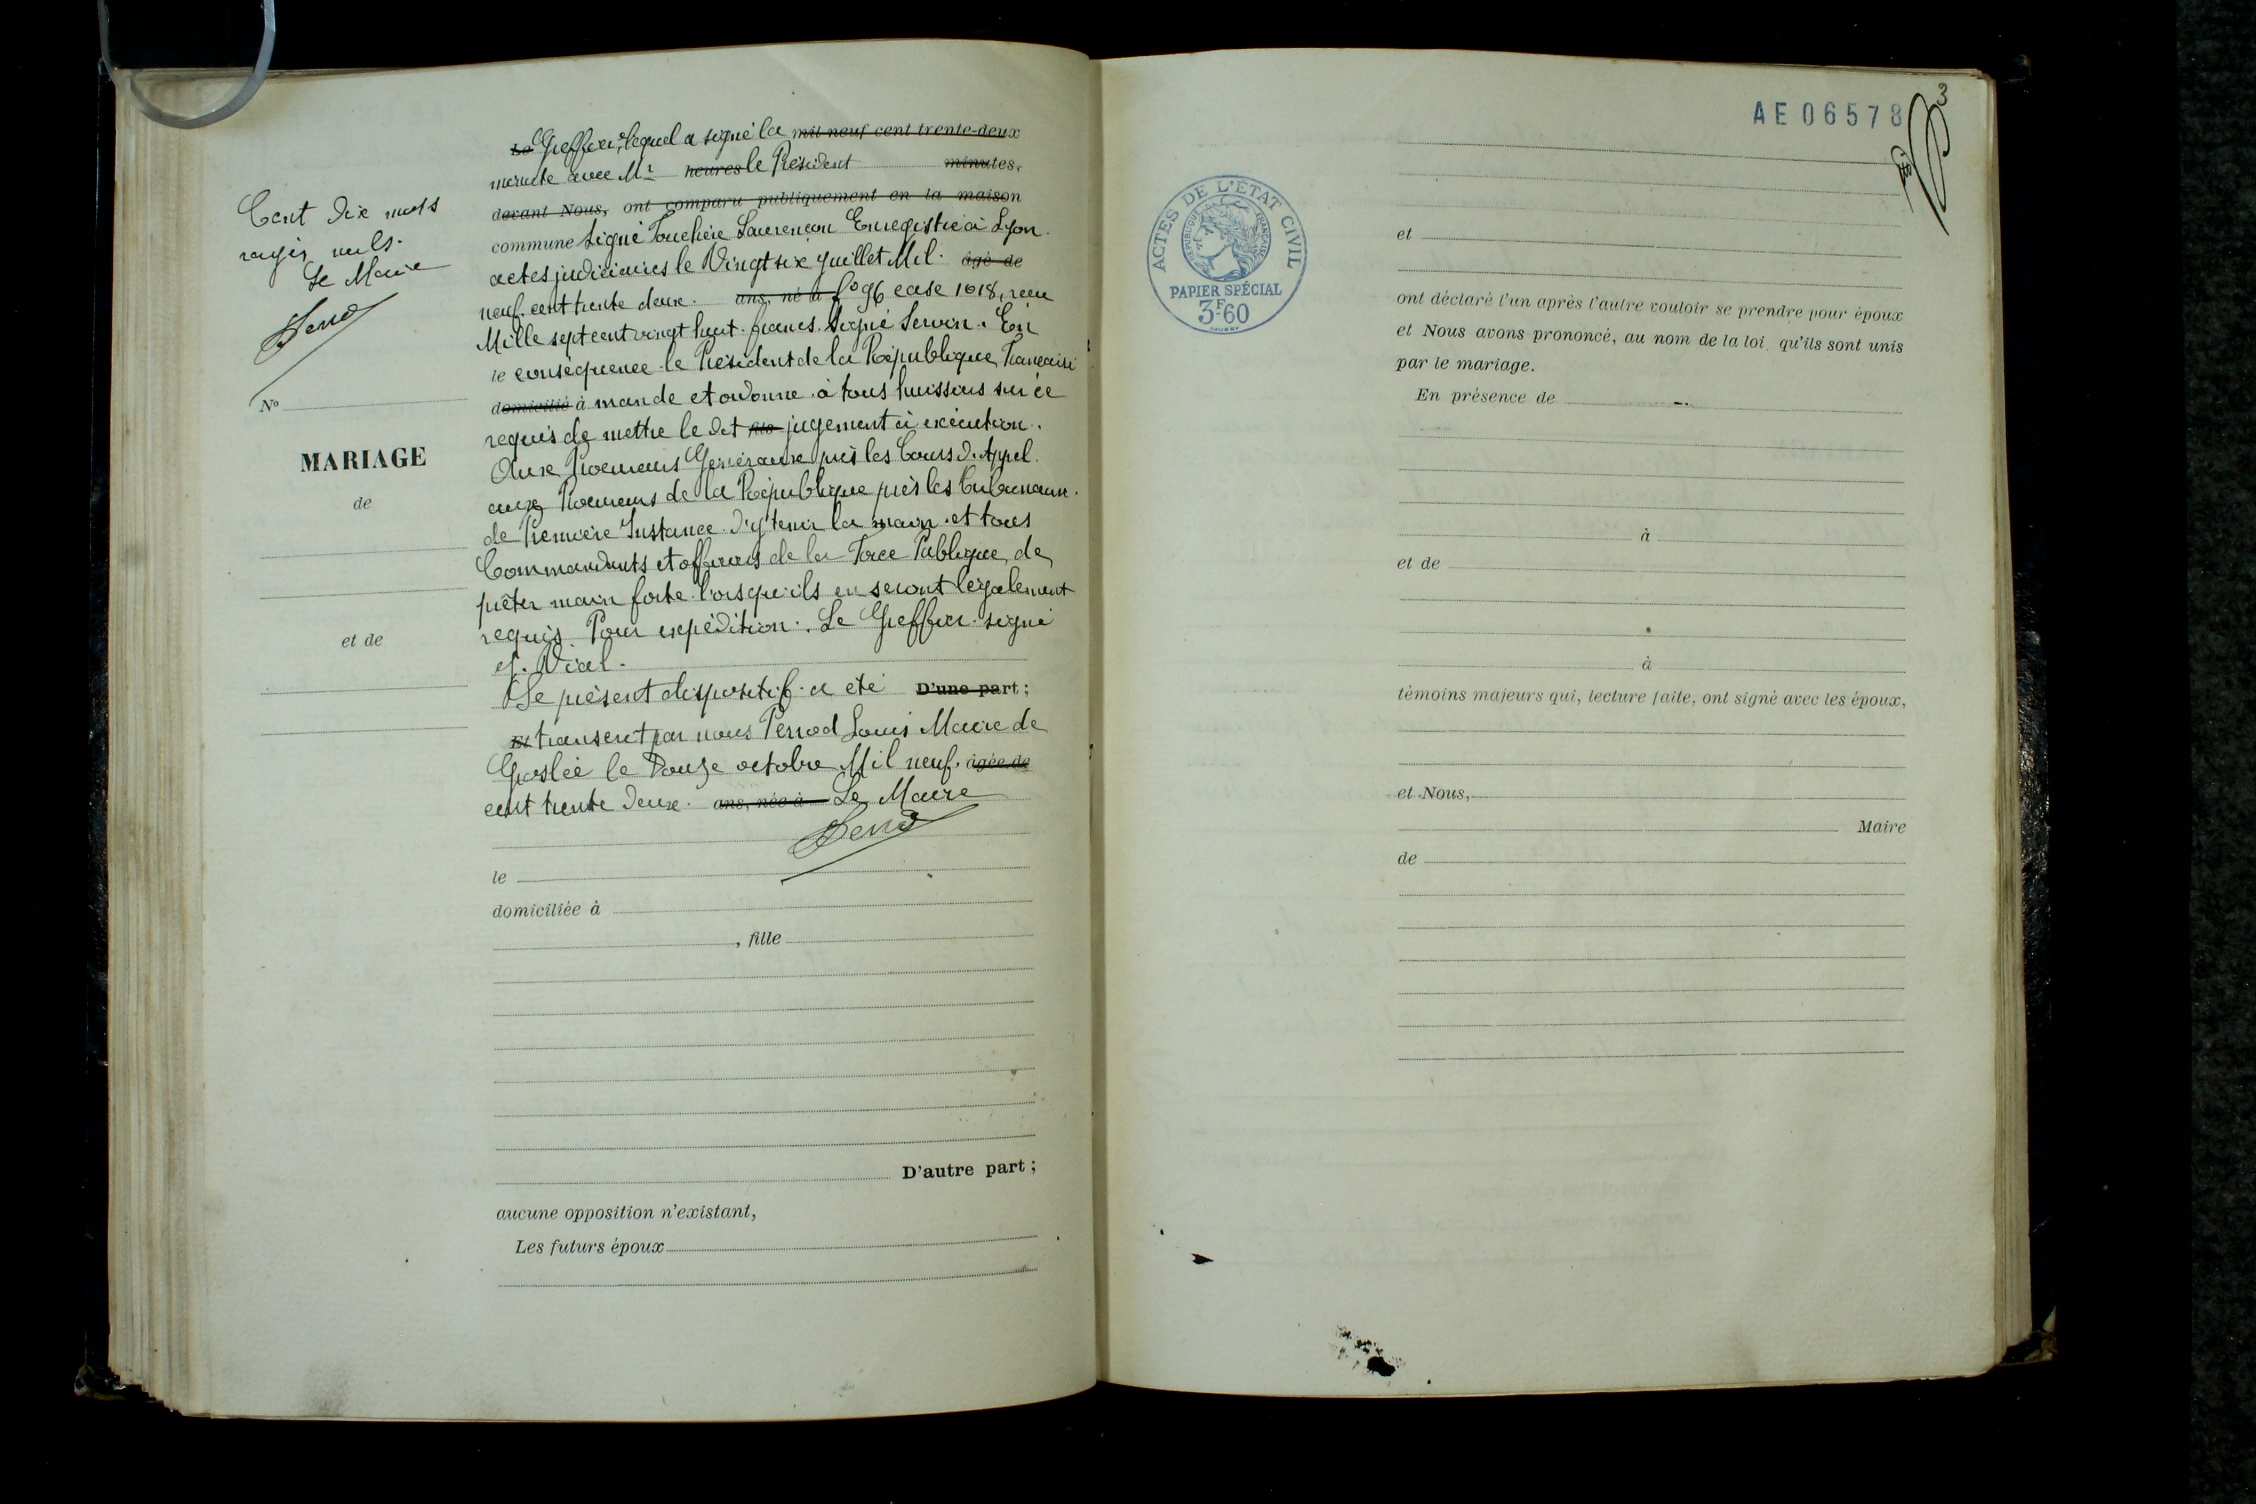 Cent dix mots
rayés nuls.
Le Maire
Nº
MARIAGE
de
et de
Le Greffier, lequel a signé la mil neuf cent trente-deux
minute avec Mr heures le Président minutes,
devant Nous, ont comparu publiquement en la maison
commune Signé Touchère Laurençon Enregistré à Lyon.
actes judiciaires le Vingt six juillet Mil. âgé de
neuf. cent trente deux. ans, né à fº 96 case 1018, reçu
Mille sept cent vingt huit. francs. Signé Servin. En
le conséquence le Président de la République Française
domicilié à mande et ordonne à tous huissiers sur ce
requis de mettre le dit fils jugement à exécution.
Aux Procureurs Généraux près les Cours d'Appel.
aux Procureurs de la République près les Tribunaux.
de Première Instance. d'y tenir la main. et tous
Commandants et officiers de la Force Publique, de
prêter main forte lorsqu'ils en seront légalement
requis. Pour expédition. Le Greffier. signé
Vial.
Le présent dispositif a été D'une part;
Et transcrit par nous Perrod Louis Maire de
Groslée le Douze octobre Mil neuf. âgée de
cent trente deux. ans, née à Le Maire
le
domiciliée à
, fille
D'autre part;
aucune opposition n'existant,
Les futurs époux
AE 06578
3
ACTES DE L'ÉTAT CIVIL
RÉPUBLIQUE FRANÇAISE
PAPIER SPÉCIAL
3F60
et
ont déclaré l'un après l'autre vouloir se prendre pour époux
et Nous avons prononcé, au nom de la loi qu'ils sont unis
par le mariage.
En présence de
à
et de
à
témoins majeurs qui, lecture faite, ont signé avec les époux,
et Nous,
Maire
de